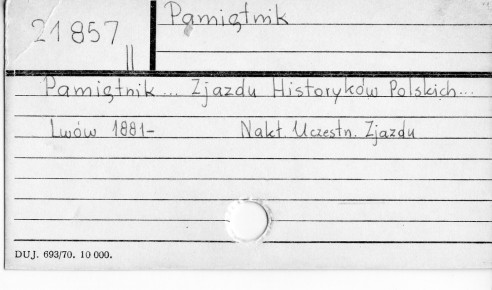 21857
II
Pamiętnik
Pamiętnik ... Zjazdu Historyków Polskich...
Lwów 1881- Nakł. Uczestn. Zjazdu
DUJ. 693/70. 10 000.